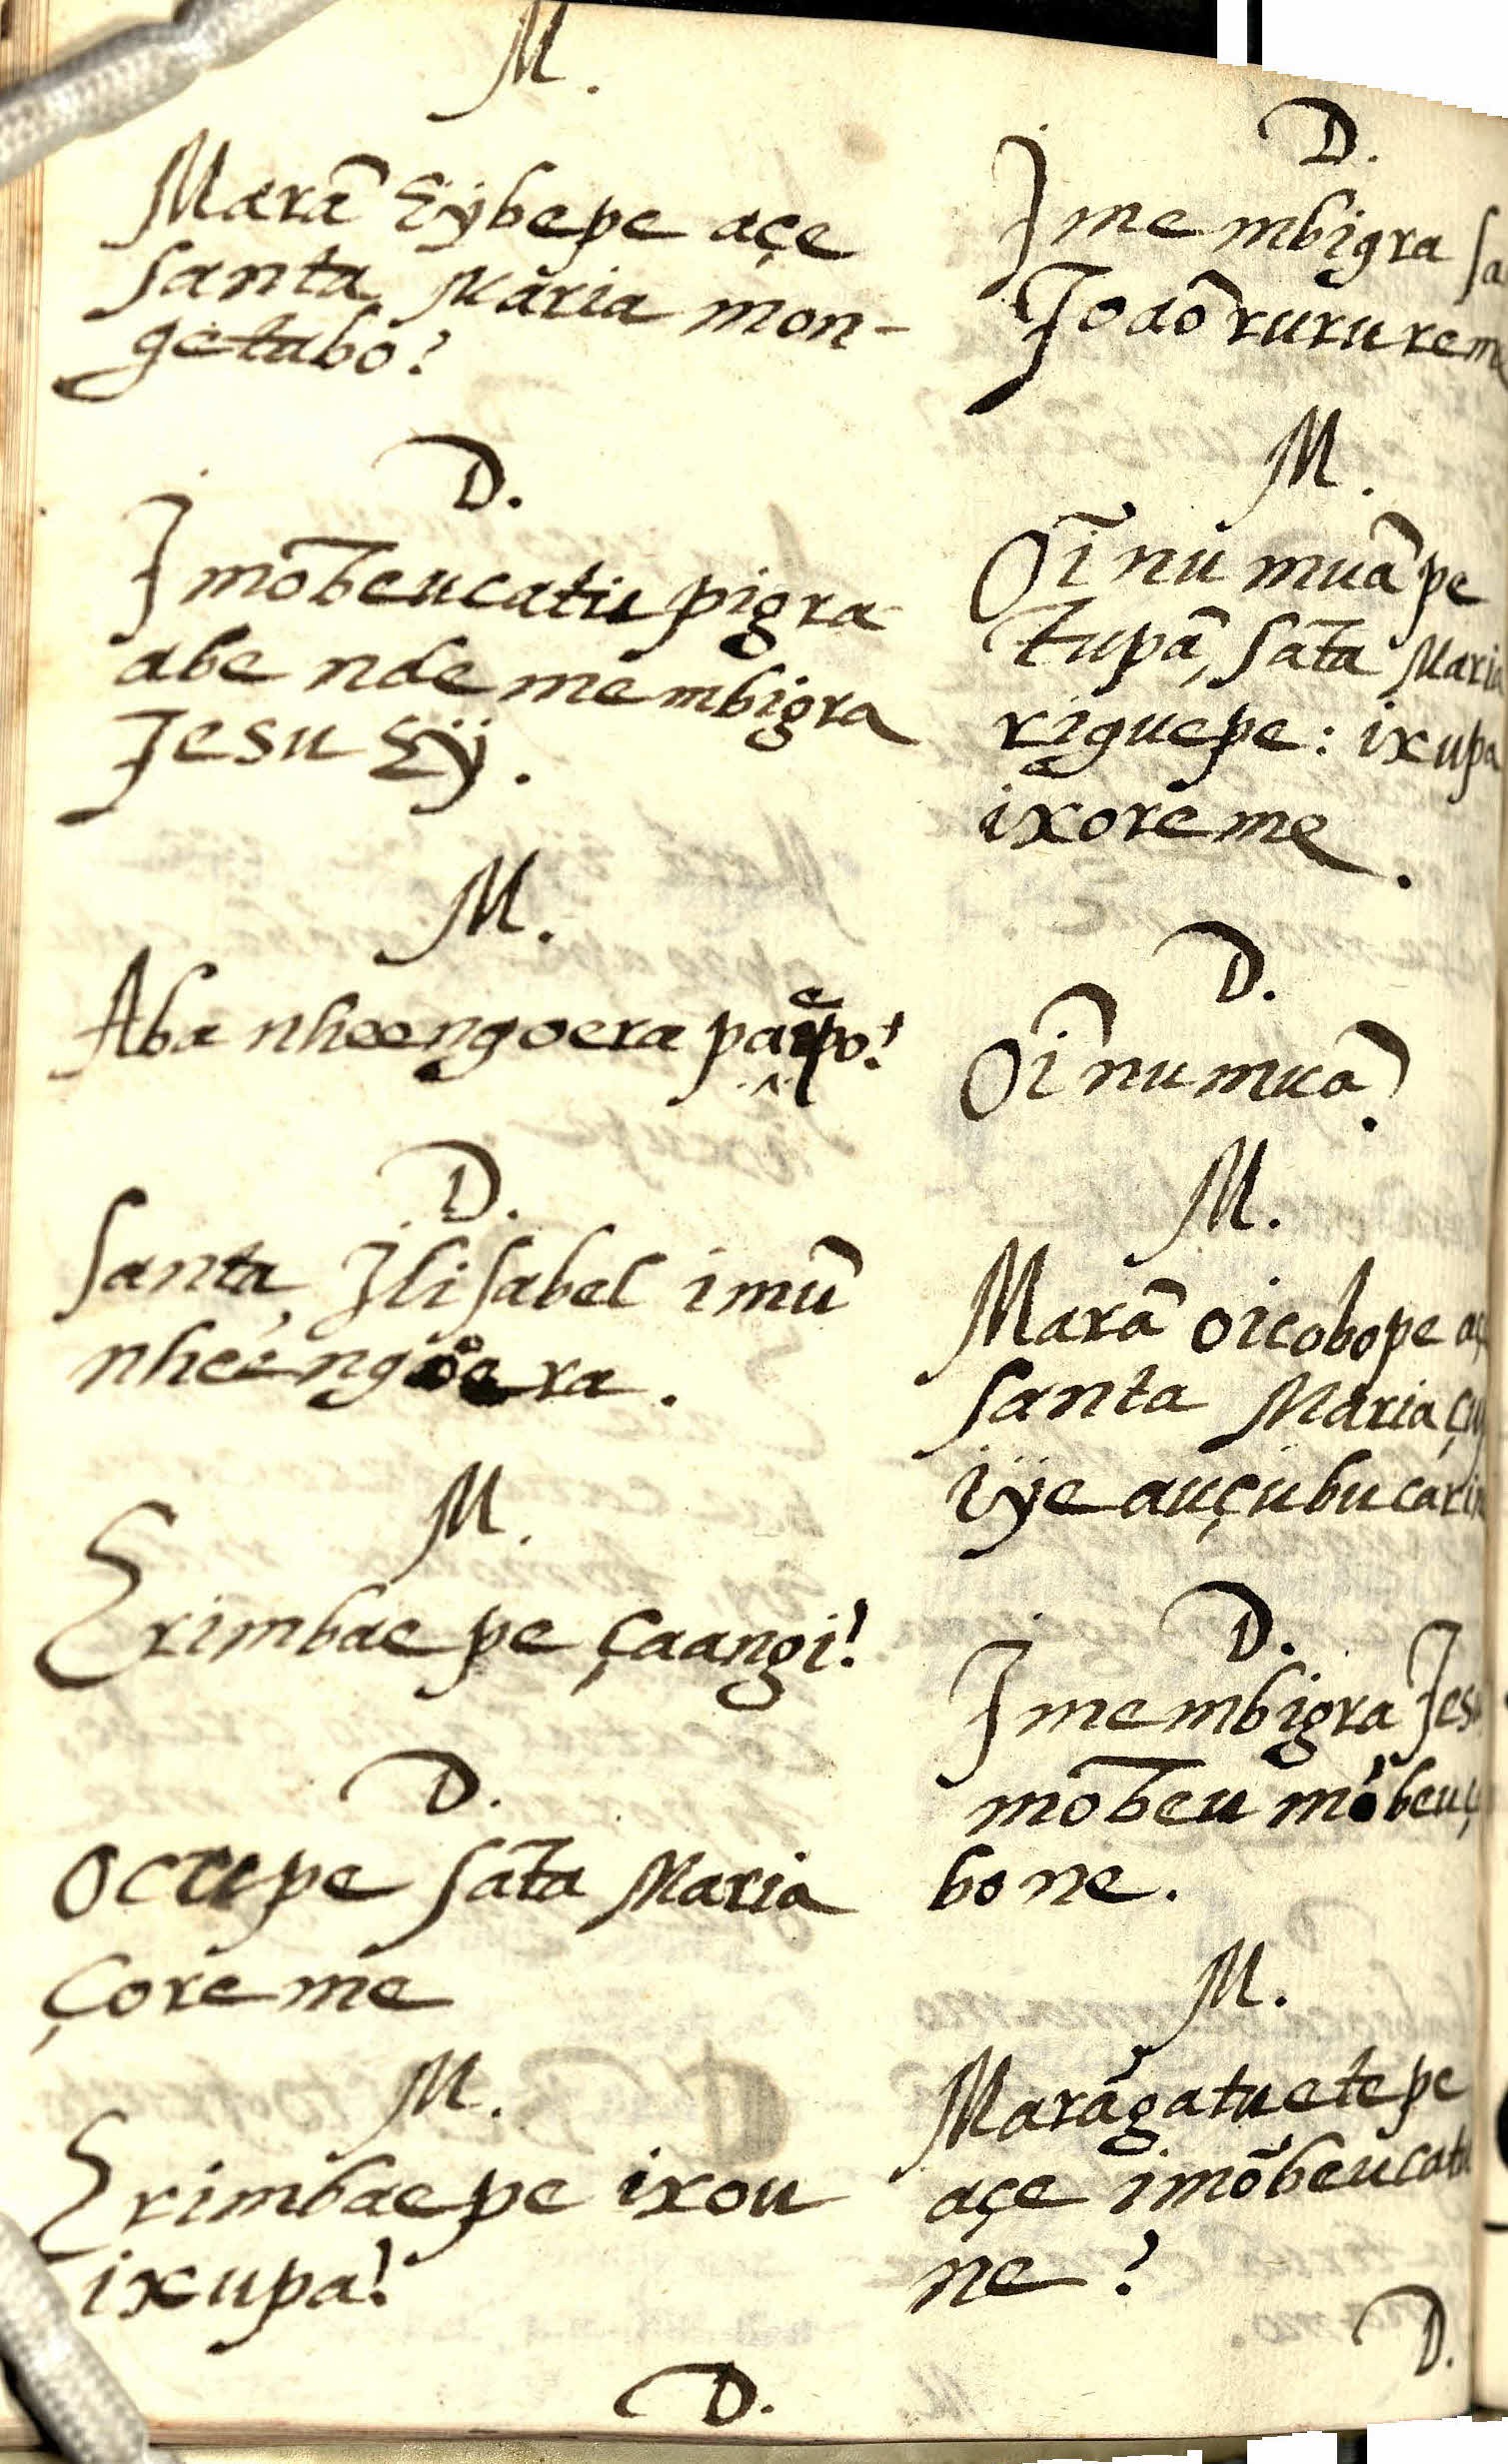 M.
Marã Eÿbepe açe
Santa Maria mon-
getabo?
D.
Imõbeucatu pigra
abe nde membigra
Jesu Eÿ.
M.
Aba nheengoera paẽpo?
D.
Santa Ilisabel imũ
nheéngoera.
M.
Erimbae pe çaangi?
D.
Ocripe Sãta Maria
Çoreme
M.
Erimbaepe ixou
ixupa?
D.
D.
Imembigra Sa
Joaõ rurureme
M.
Oĩnu muãpe
Tupã, Sãta Maria
riguepe: ixupa
ixoreme.
D.
Oĩnumuã.
M.
Marã oicobope açe
Santa Maria
iÿe auçubucari
D.
Imembigra Jesu
mõbeu mõbeuç
bo ne.
M.
Marãgatuetepe
açe imõbeucatu
ne?
D.